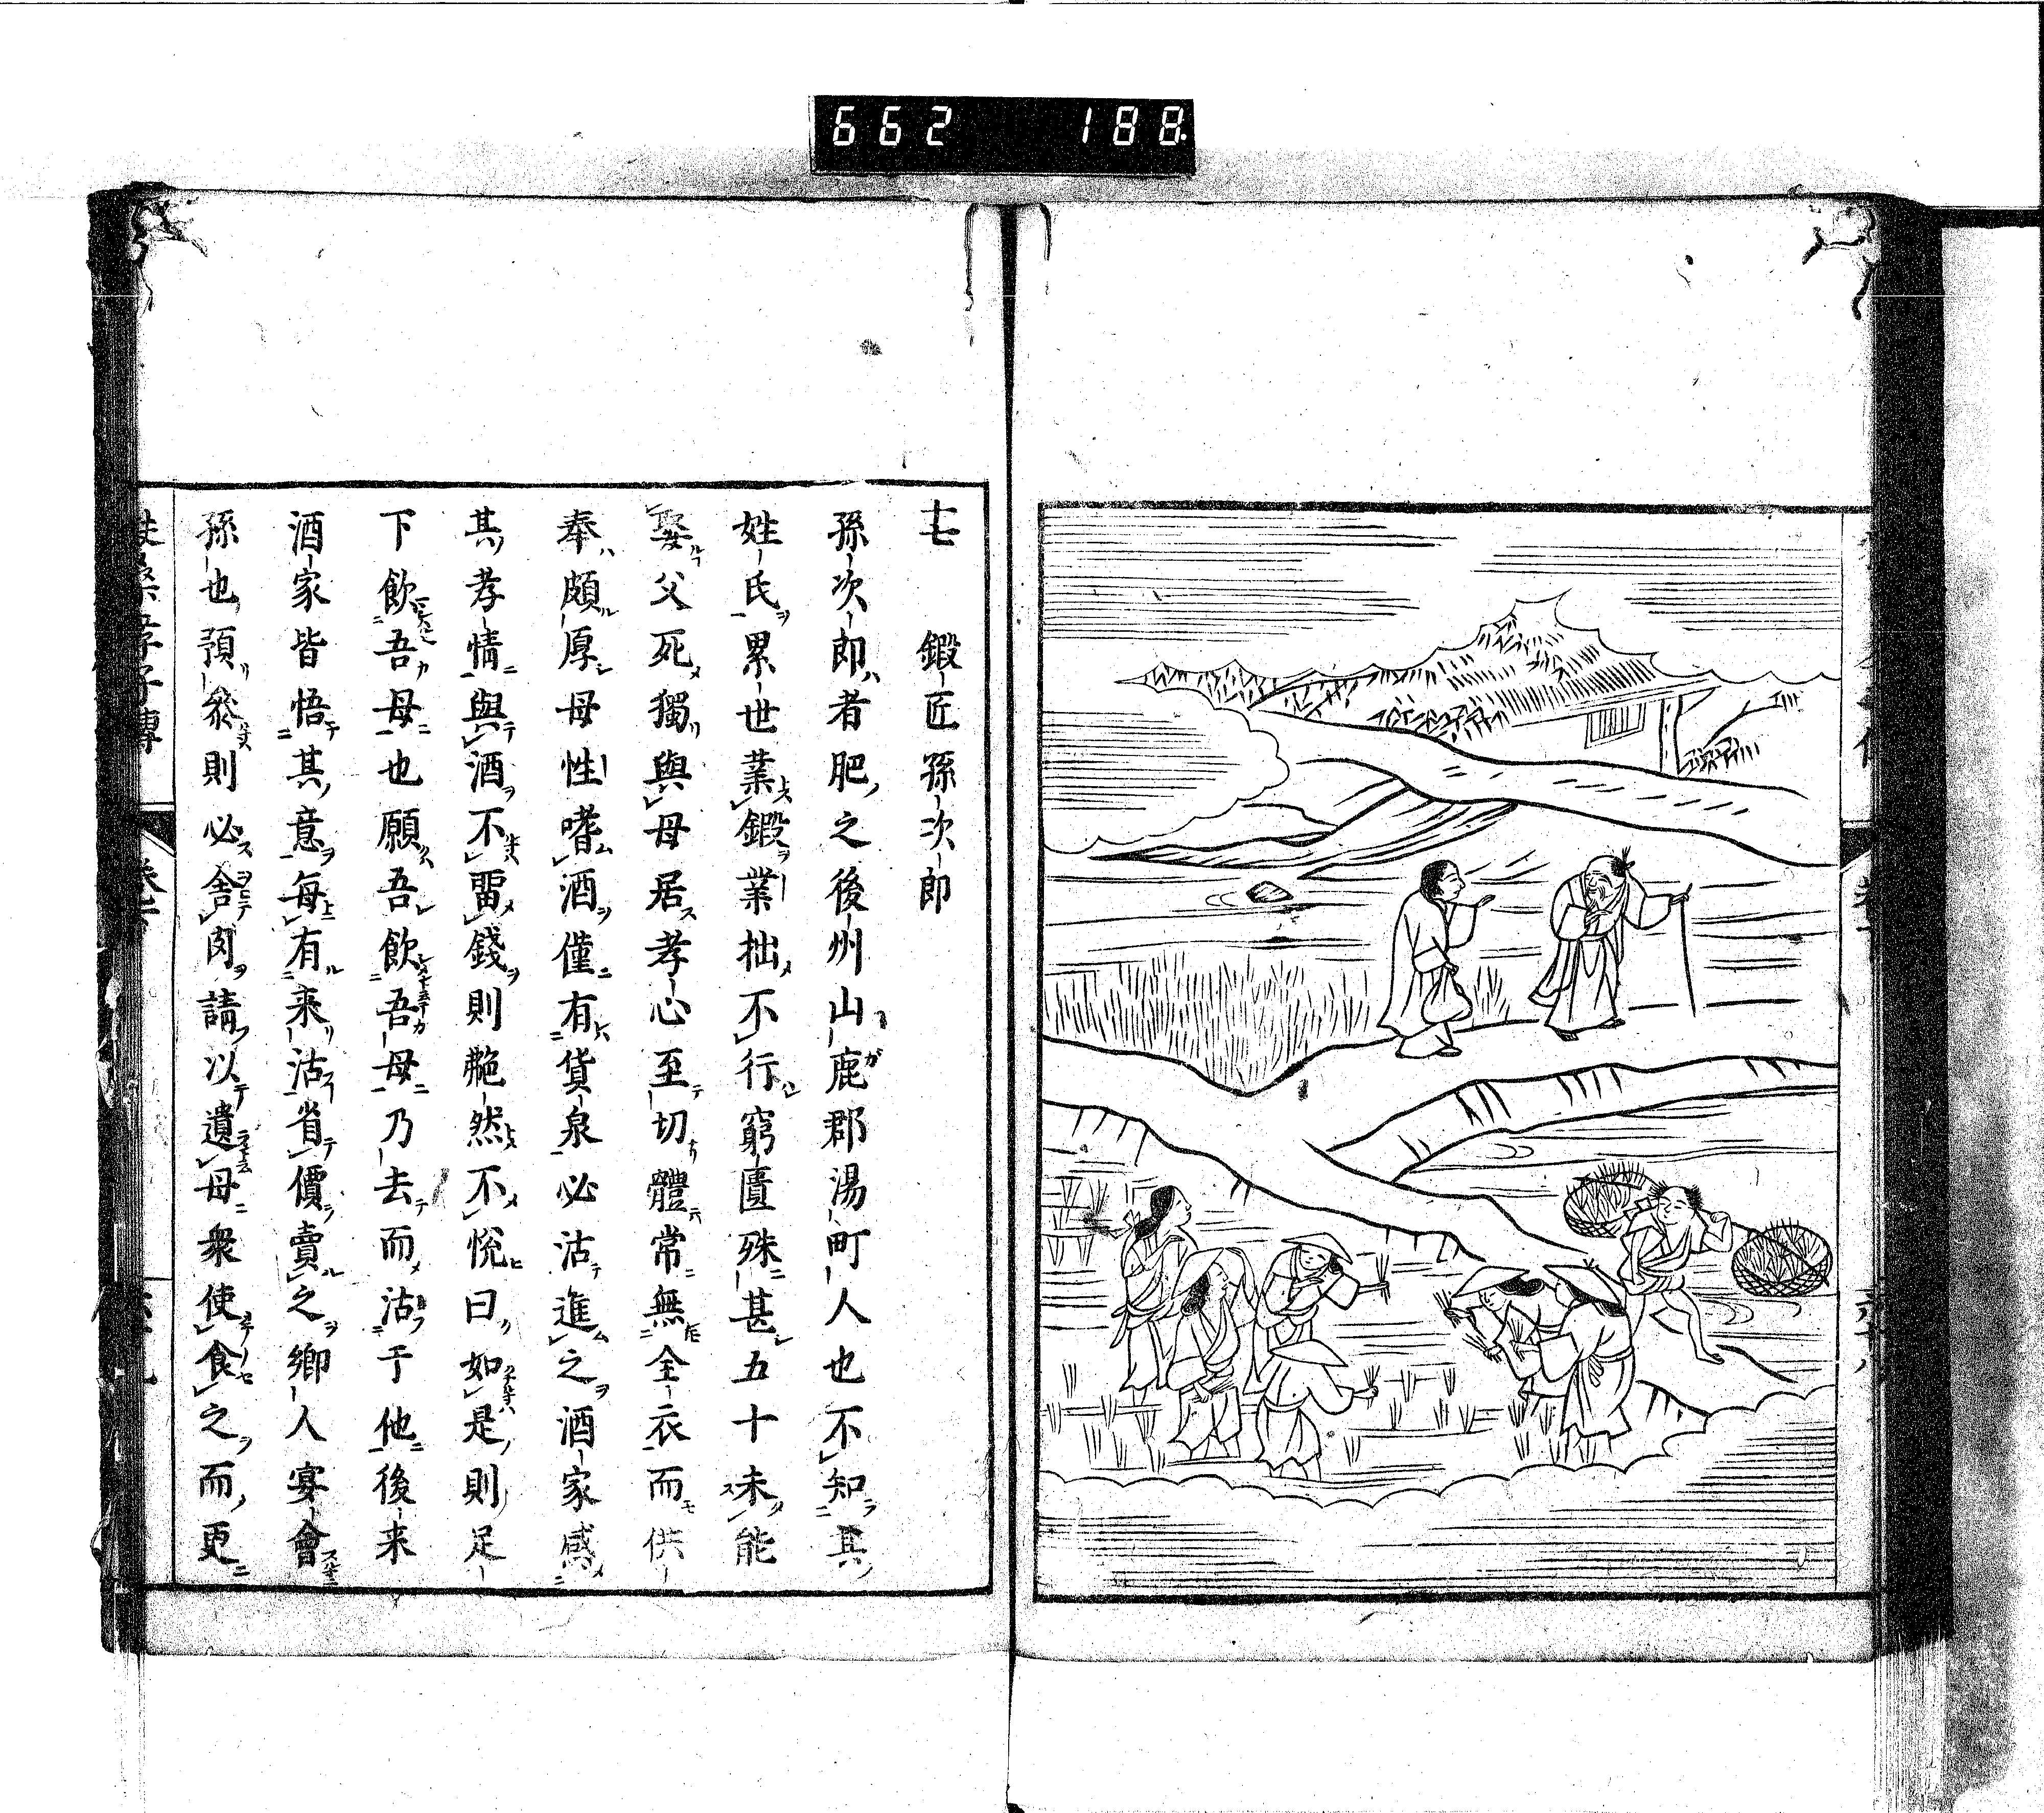 662 188
十七 鍛匠孫次郎
孫次郎者肥之後州山鹿郡湯町人也不知其
姓氏累世業鍛業拙不行窮匱殊甚五十未能
娶父死獨與母居孝心至切體常無全衣而供
奉頗厚母性嗜酒僅有貨泉必沽進之酒家感
其孝情與酒不畱錢則艴然不悅曰如是則足
下飲吾母也願吾飲吾母乃去而沽于他後来
酒家皆悟其意每有来沽省價賣之鄉人宴會
孫也預參則必舍肉請以遺母衆使食之而更